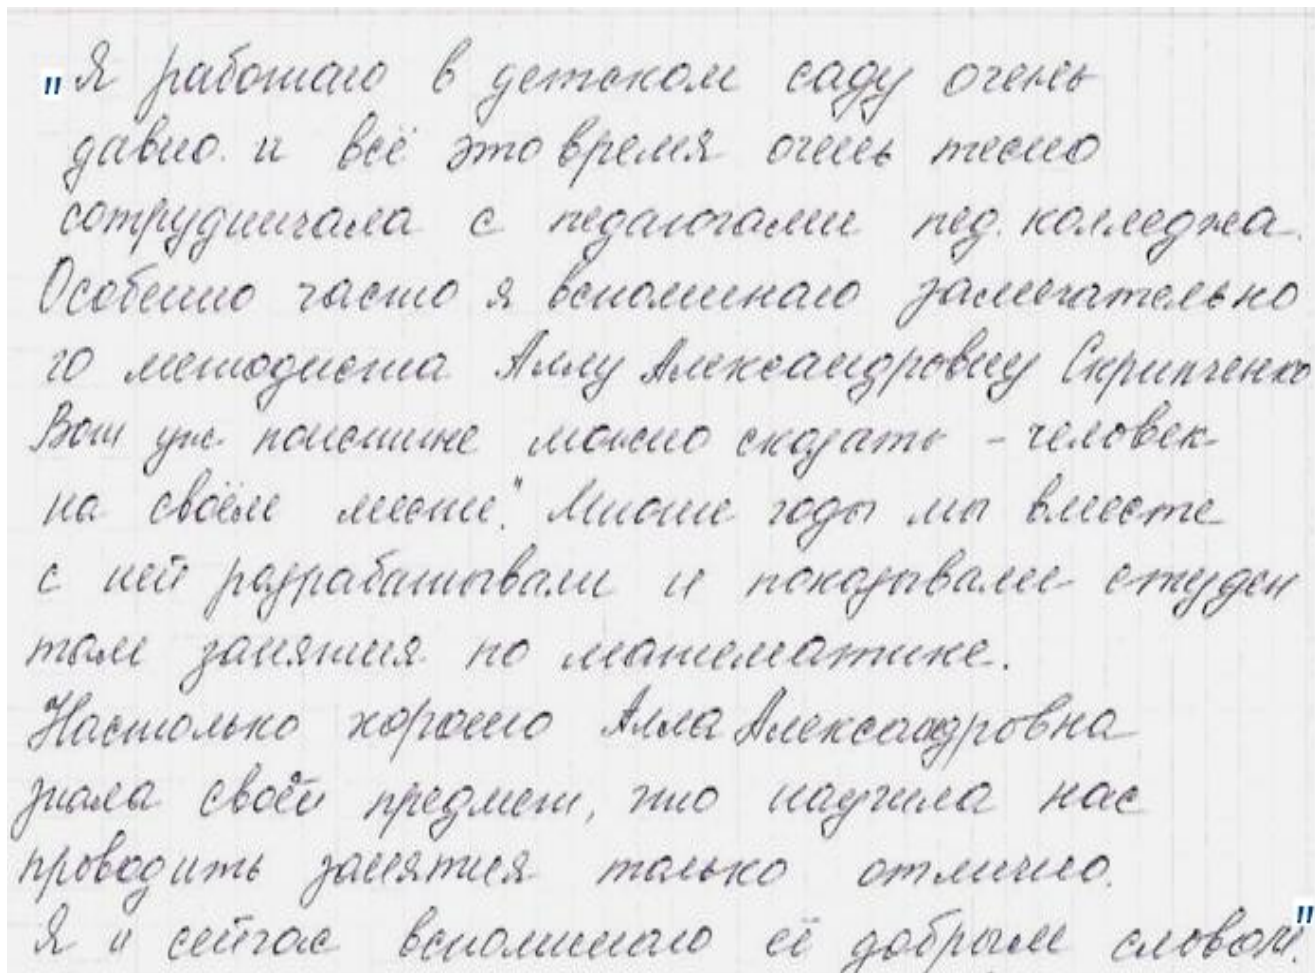 "Я работаю в детском саду очень
давно. и всё это время очень тесно
сотрудничала с педагогами пед. колледжа.
Особенно часто я вспоминаю замечательно
го методиста Аллу Александровну Скрипченко
Вот уж поистине можно сказать - человек
на своём месте". Многие годы мы вместе
с ней разрабатывали и показывали студен
там занятия по математике.
Настолько хорошо Алла Александровна
знала свой предмет, что научила нас
проводить занятия только отлично.
Я и сейчас вспоминаю её добрым словом."